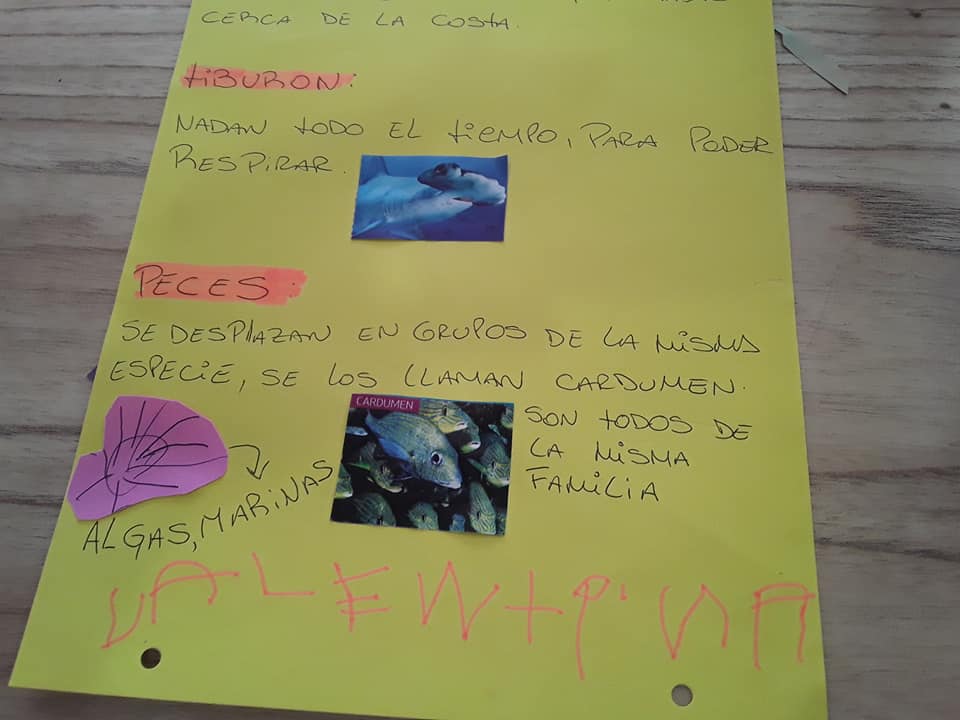 CERCA DE LA COSTA.
TIBURON:
NADAN TODO EL TIEMPO, PARA PODER
RESPIRAR.
PECES:
SE DESPLAZAN EN GRUPOS DE LA MISMA
ESPECIE, SE LOS LLAMAN CARDUMEN.
CARDUMEN
SON TODOS DE
LA MISMA
FAMILIA
ALGAS, MARINAS
VALENTINA